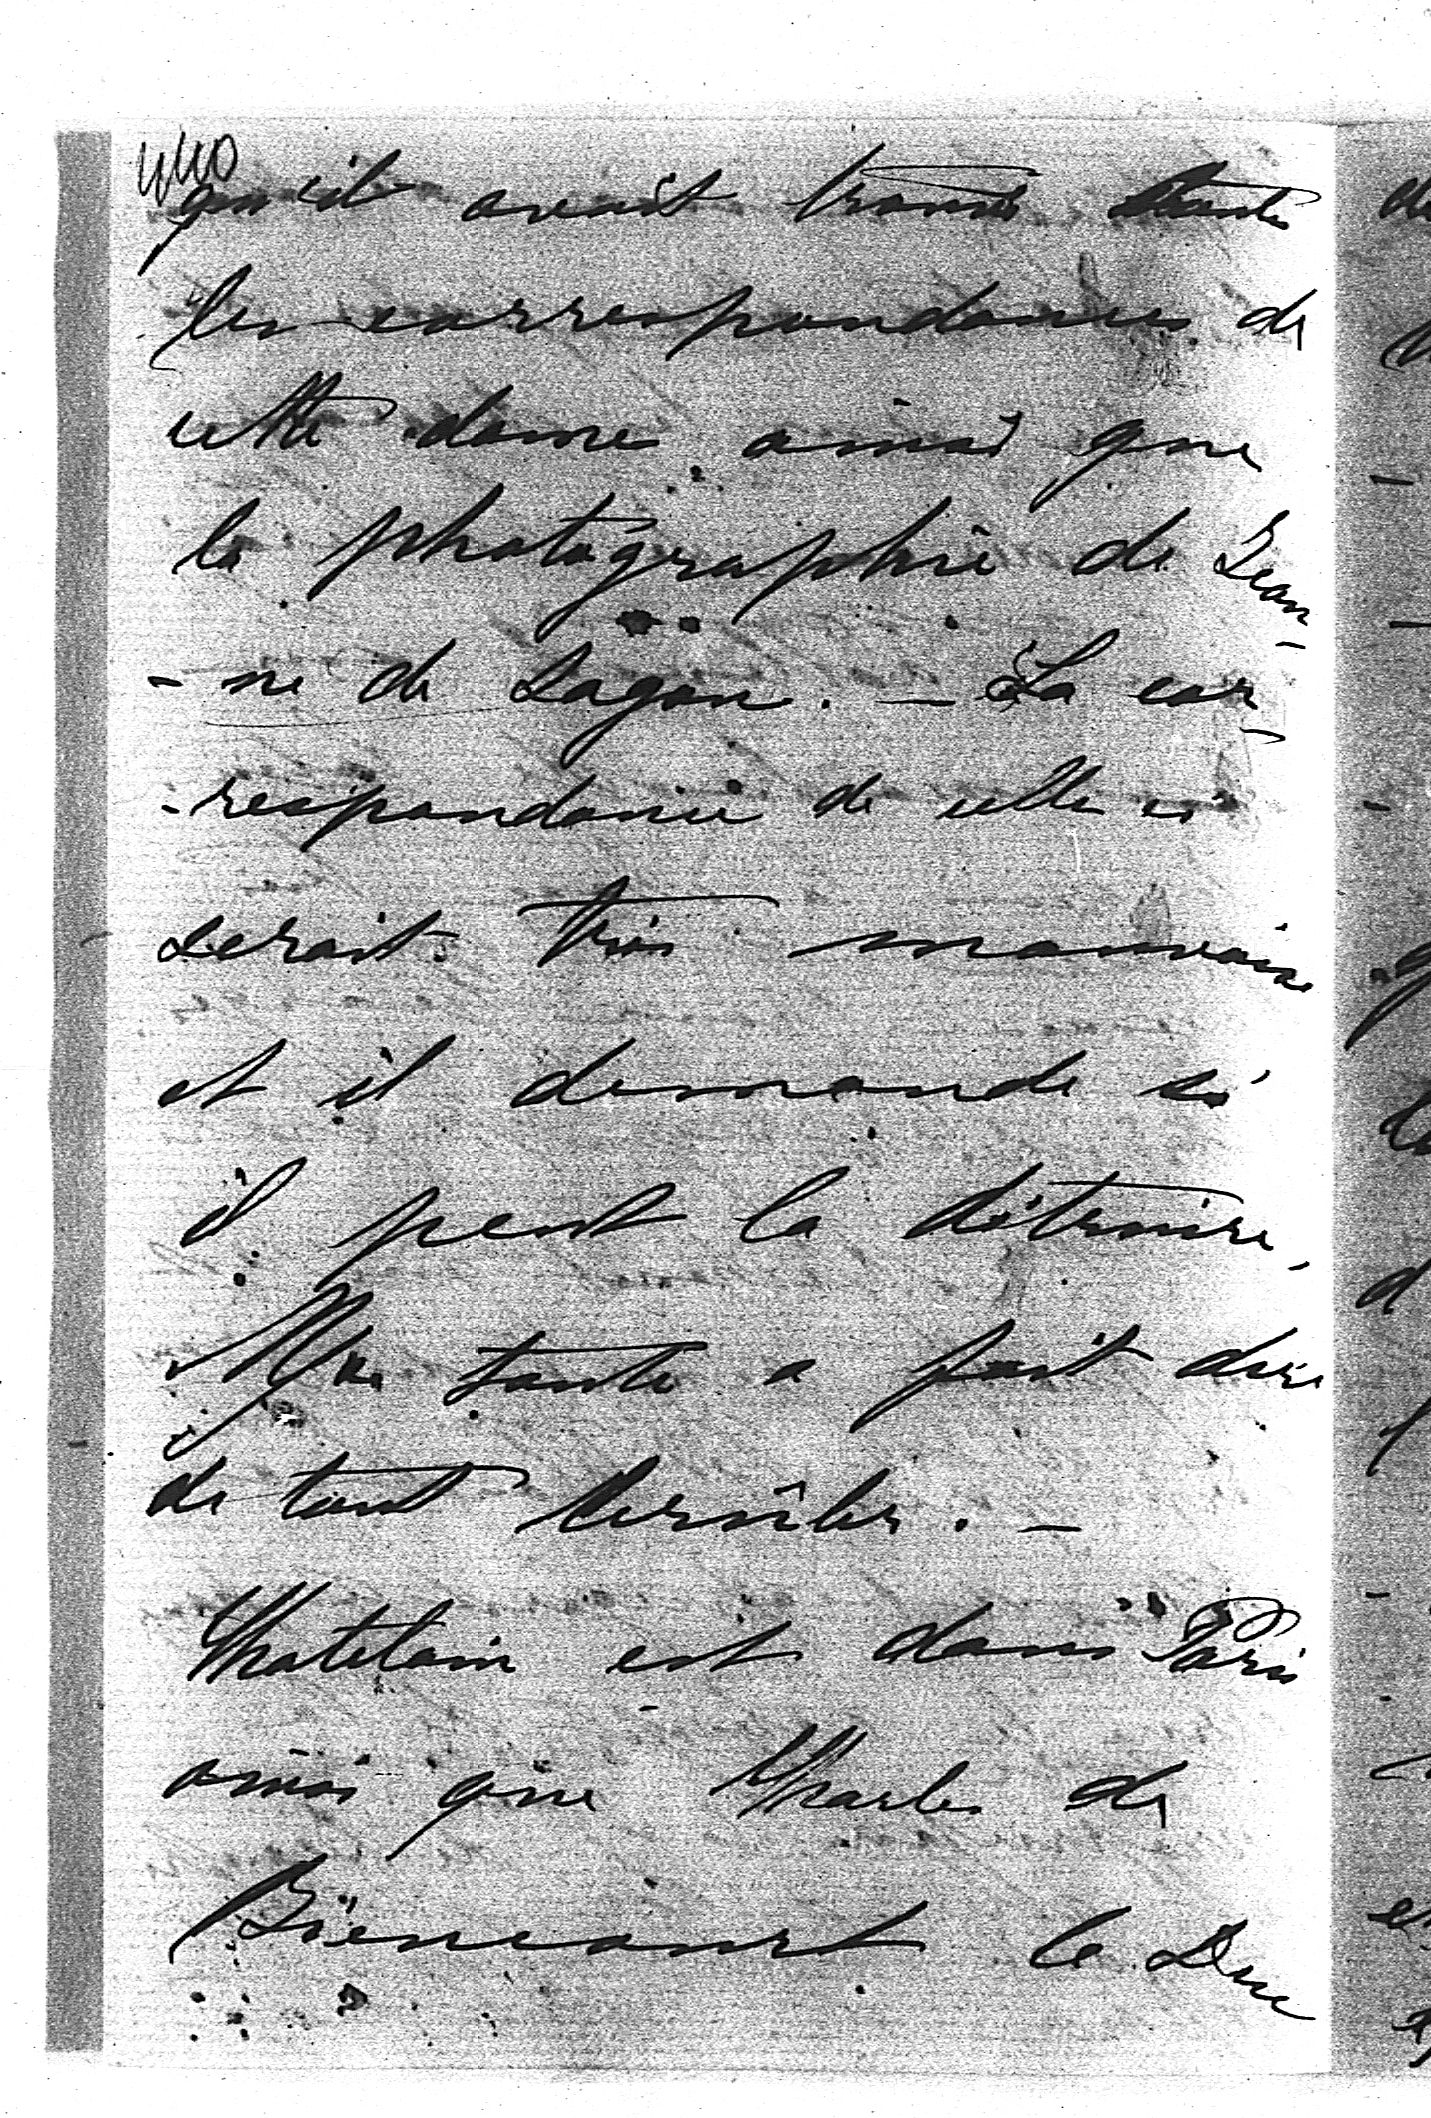 440
qu'il avait trouvé toutes
les correspondances de
cette dame ainsi que
la photographie de Jean-
-ne de Lagon. — La cor-
-respondance de celle ci
serait très mauvaise
et il demande si
il peut la détruire,
Ma tante a fait dire
de tout brûler. —
Chatelain est dans Paris
ainsi que Charles de
Biencourt le Duc